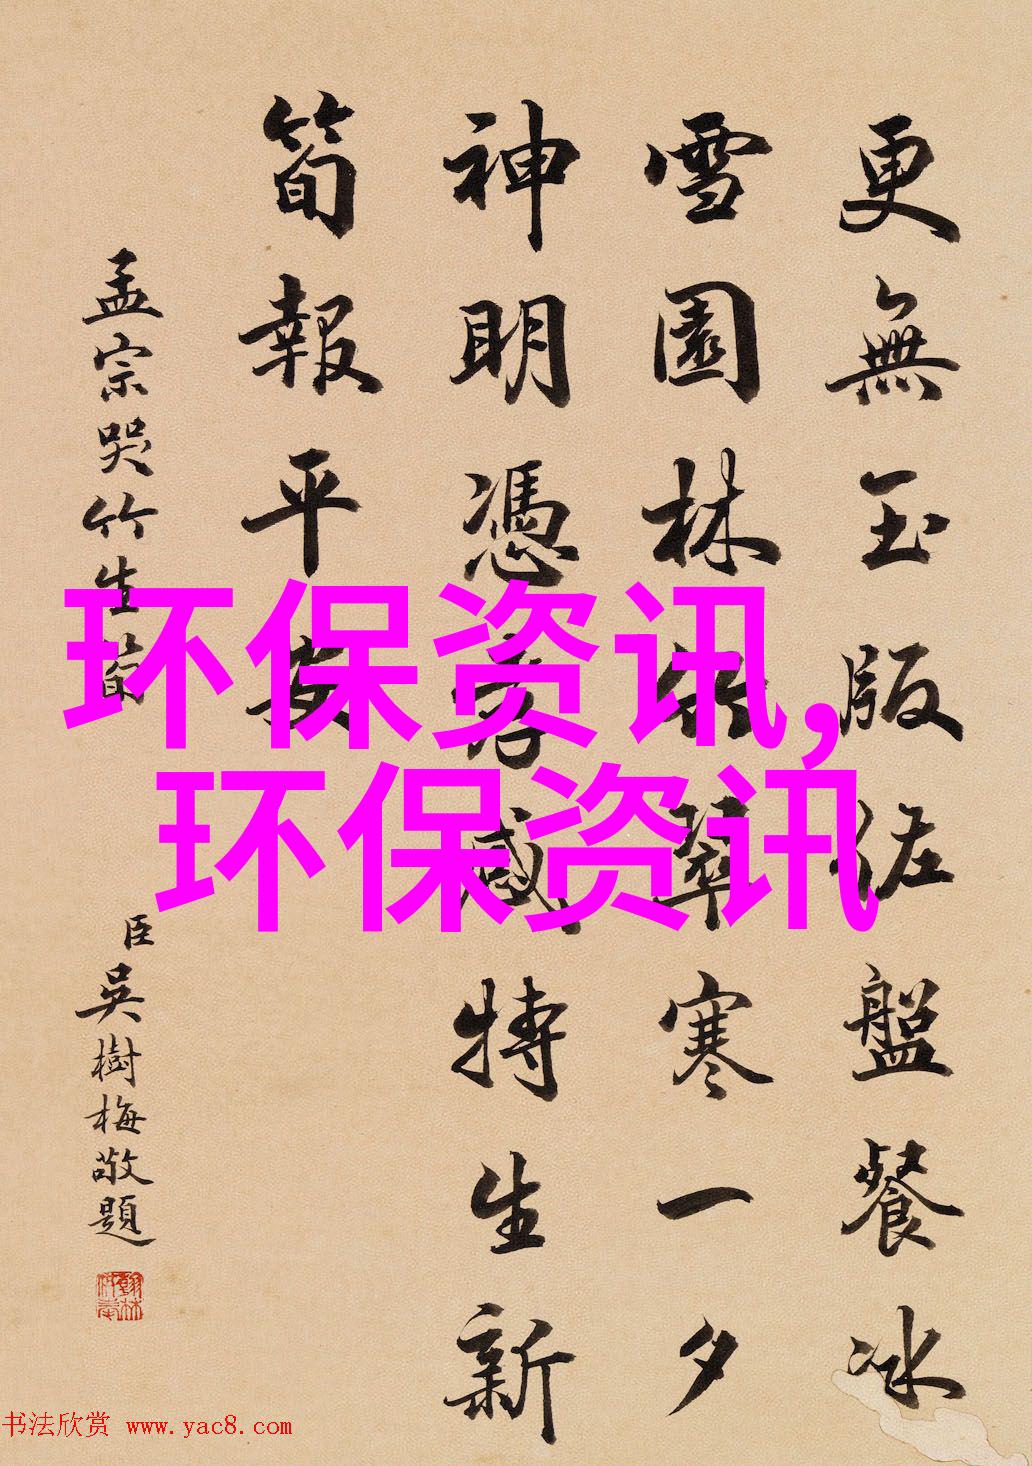 更無玉版佐盤餐冰
雪園林翠寒一夕
神明憑孝感特生新
筍報平安
孟宗哭竹生筍
臣吳樹梅敬題
环保资讯,
环保资讯
书法欣赏 www.yac8.com